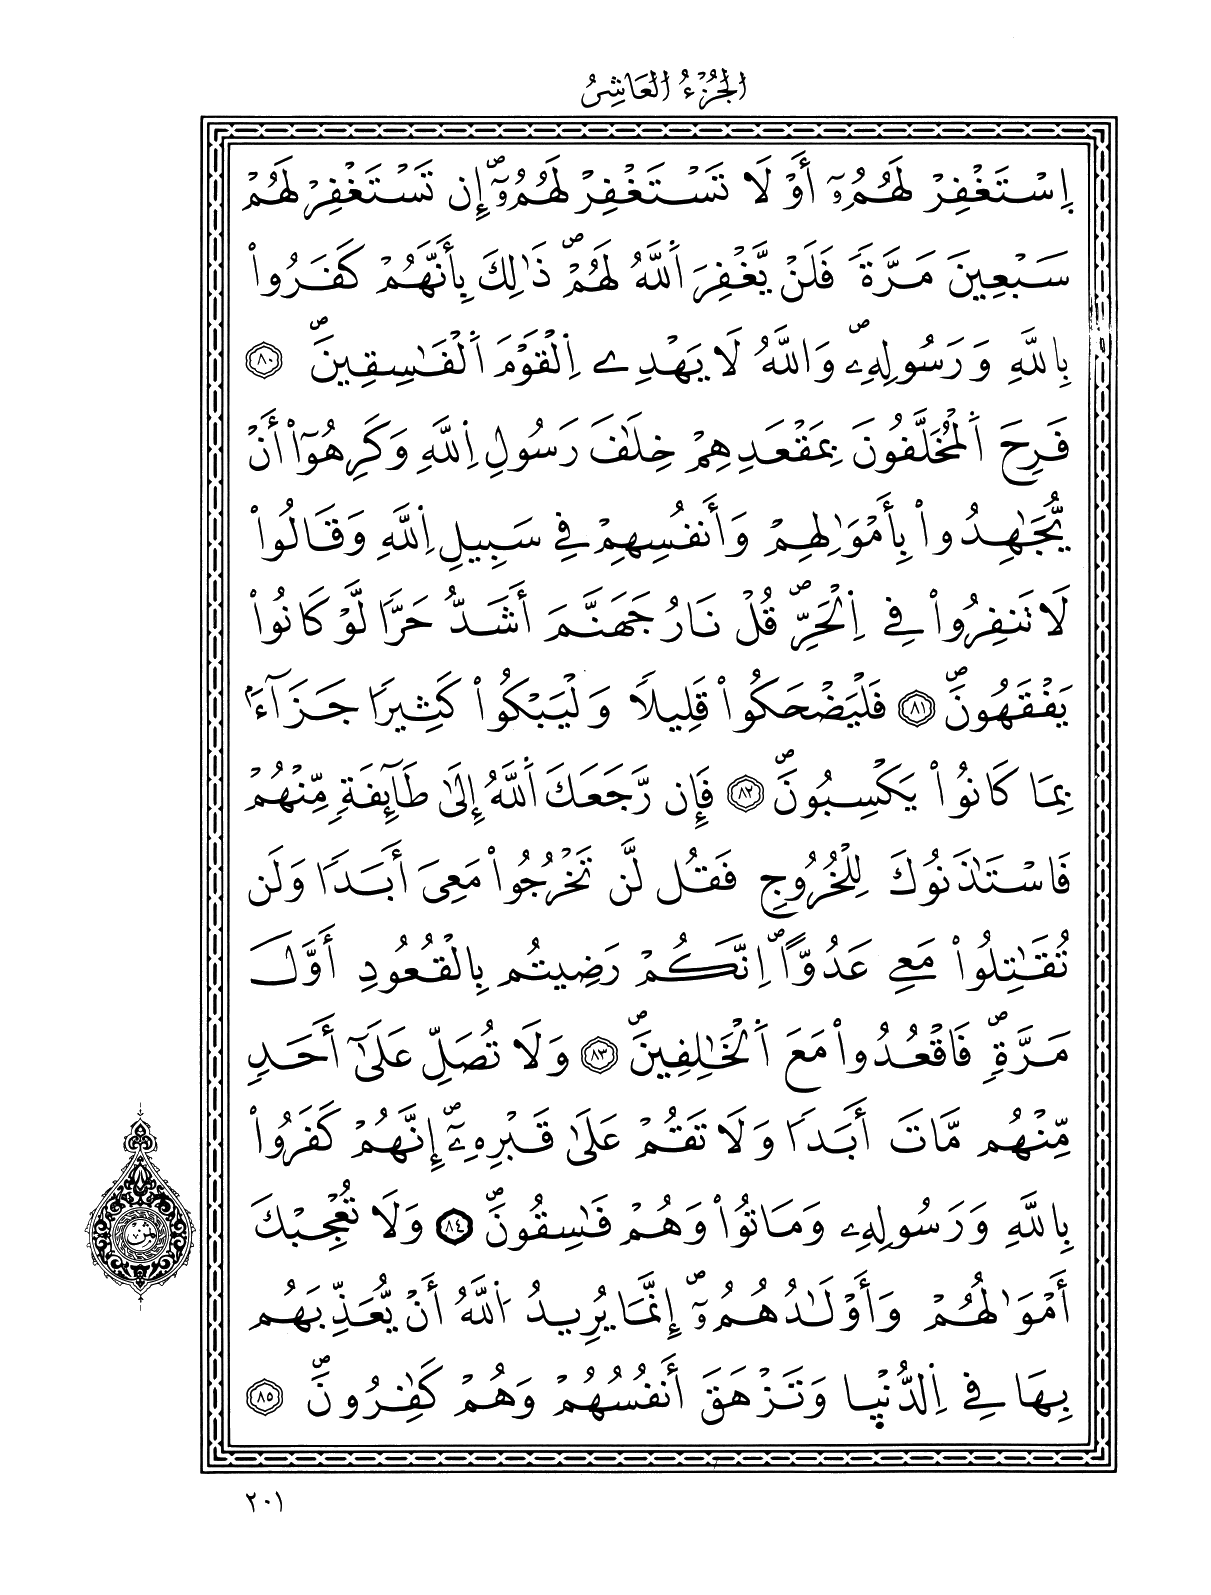 الجُزْءُ العَاشِرُ
اِ۪سْتَغْفِرْ لَهُمُۥٓ أَوْ لَا تَسْتَغْفِرْ لَهُمُۥٓۖ إِن تَسْتَغْفِرْ لَهُمْ
سَبْعِينَ مَرَّةٗ فَلَنْ يَّغْفِرَ اَ۬للَّهُ لَهُمْۖ ذَٰلِكَ بِأَنَّهُمْ كَفَرُواْ
بِاللَّهِ وَرَسُولِهِۦۖ وَاللَّهُ لَا يَهْدِے اِ۬لْقَوْمَ اَ۬لْفَٰسِقِينَۖ ٨٠
فَرِحَ اَ۬لْمُخَلَّفُونَ بِمَقْعَدِهِمْ خِلَٰفَ رَسُولِ اِ۬للَّهِ وَكَرِهُوٓاْ أَنْ
يُّجَٰهِدُواْ بِأَمْوَٰلِهِمْ وَأَنفُسِهِمْ فِے سَبِيلِ اِ۬للَّهِ وَقَالُواْ
لَا تَنفِرُواْ فِے اِ۬لْحَرِّۖ قُلْ نَارُ جَهَنَّمَ أَشَدُّ حَرّاٗ لَّوْ كَانُواْ
يَفْقَهُونَۖ ٨١ فَلْيَضْحَكُواْ قَلِيلاٗ وَلْيَبْكُواْ كَثِيراٗ جَزَآءَۢ
بِمَا كَانُواْ يَكْسِبُونَۖ ٨٢ فَإِن رَّجَعَكَ اَ۬للَّهُ إِلَىٰ طَآئِفَةٖ مِّنْهُمْ
فَاسْتَـٔۡذَنُوكَ لِلْخُرُوجِ فَقُل لَّن تَخْرُجُواْ مَعِيَ أَبَداٗ وَلَن
تُقَٰتِلُواْ مَعِے عَدُوّاًۖ اِنَّكُمْ رَضِيتُم بِالْقُعُودِ أَوَّلَ
مَرَّةٖۖ فَاقْعُدُواْ مَعَ اَ۬لْخَٰلِفِينَۖ ٨٣ وَلَا تُصَلِّ عَلَىٰٓ أَحَدٖ
مِّنْهُم مَّاتَ أَبَداٗ وَلَا تَقُمْ عَلَىٰ قَبْرِهِۦٓۖ إِنَّهُمْ كَفَرُواْ
بِاللَّهِ وَرَسُولِهِۦ وَمَاتُواْ وَهُمْ فَٰسِقُونَۖ ٨٤ وَلَا تُعْجِبْكَ
أَمْوَٰلُهُمْ وَأَوْلَٰدُهُمُۥٓۖ إِنَّمَا يُرِيدُ اُ۬للَّهُ أَنْ يُّعَذِّبَهُم
بِهَا فِے اِ۬لدُّنْيَا وَتَزْهَقَ أَنفُسُهُمْ وَهُمْ كَٰفِرُونَۖ ٨٥
ثمن
٢٠١